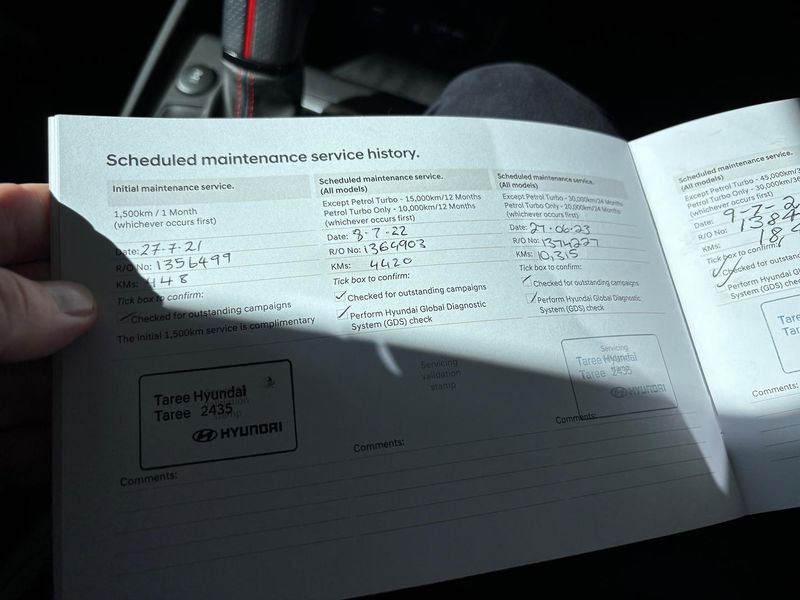 Scheduled maintenance service history.
Initial maintenance service.
1,500km / 1 Month
(whichever occurs first)
Date: 27-7-21
R/O No: 1356499
KMs: 448
Tick box to confirm:
Checked for outstanding campaigns
The initial 1,500km service is complimentary
Taree Hyundai
Taree 2435
HYUNDAI
Comments:
Scheduled maintenance service.
(All models)
Except Petrol Turbo - 15,000km/12 Months
Petrol Turbo Only - 10,000km/12 Months
(whichever occurs first)
Date: 8-7-22
R/O No: 1364903
KMs: 4420
Tick box to confirm:
Checked for outstanding campaigns
Perform Hyundai Global Diagnostic
System (GDS) check
Servicing
validation
stamp
Comments:
Scheduled maintenance service.
(All models)
Except Petrol Turbo - 30,000km/24 Months
Petrol Turbo Only - 20,000km/24 Months
(whichever occurs first)
Date: 27.06.23
R/O No: 1374227
KMs: 10,315
Tick box to confirm:
Checked for outstanding campaigns
Perform Hyundai Global Diagnostic
System (GDS) check
Servicing
Taree Hyundai
Taree 2435
HYUNDAI
Comments:
Scheduled maintenance service.
(All models)
Except Petrol Turbo - 45,000km/3
Petrol Turbo Only - 30,000km/3
(whichever occurs first)
Date: 9-7-2
R/O No: 1384
KMs: 184
Tick box to confirm:
Checked for outstanding
Perform Hyundai Gl
System (GDS) check
Taree
Taree
Comments: